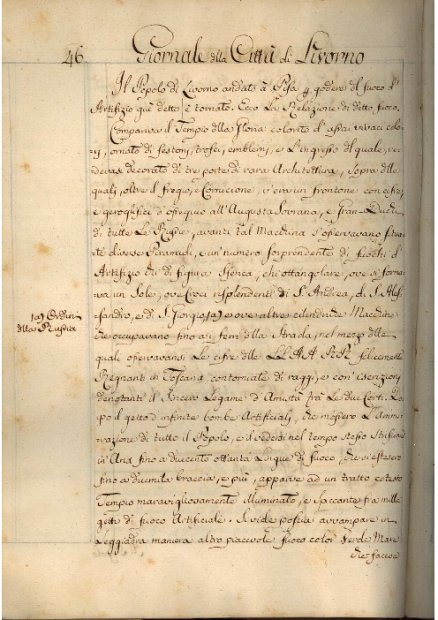 46.
Giornale della Città di Livorno
Il Popolo di Livorno andato à Pisa godere del fuoco d'
Artifizio già detto è tornato. Ecco La Relazione di detto fuoco.
Compariva il Tempio della Gloria colorito d' assai vivaci colo-
ri, ornato di festoni, trofei, emblemi, e L'ingresso del quale, ve-
devasi decorato di tre porte di rara Architettura, sopra delle
quali, oltre il fregio, e Cornicione vi era un frontone con cifre,
e geroglifici d' ossequio all'Augusta Sovrana, e Gran-Duchi
di tutte Le Russie, avanti tal Macchina s'operavano
diverse Piramidi, e un numero sorprendente di fuochi d'
Artifizio di figura Sferica, chi ottangolare, ove si forma-
va un Sole, ove Croci risplendenti di S. Andrea, di S. Ales-
sandro, e di S. Giorgio (a) e ove altre cilindriche Macchine
che occupavano fino a i femi della Strada, nel mezzo delle
quali operavano Le cifre delle LL. AA. RR. felicemente
Regnanti in Toscana contornate di raggi, e con iscrizioni
denotanti il Sincero Legame d' Amistà frà Le due Corti. Do-
po il getto d' infinite bombe Artificiali, che mossero L'Ammi-
razione di tutto il Popolo, e il vedersi nel tempo stesso
in Aria fino a duecento ottanta Lingue di fuoco, che si estesero
fino a dumila braccia, e più, apparve ad un tratto cotesto
Tempio maravigliosamente illuminato, e spaccante fra mille
getti di fuoco Artificiale. Si vide poscia avvampare in
Leggiadra maniera altro piacevole fuoco color Verde Mare
che facesse
(a) Ordini
della Russia